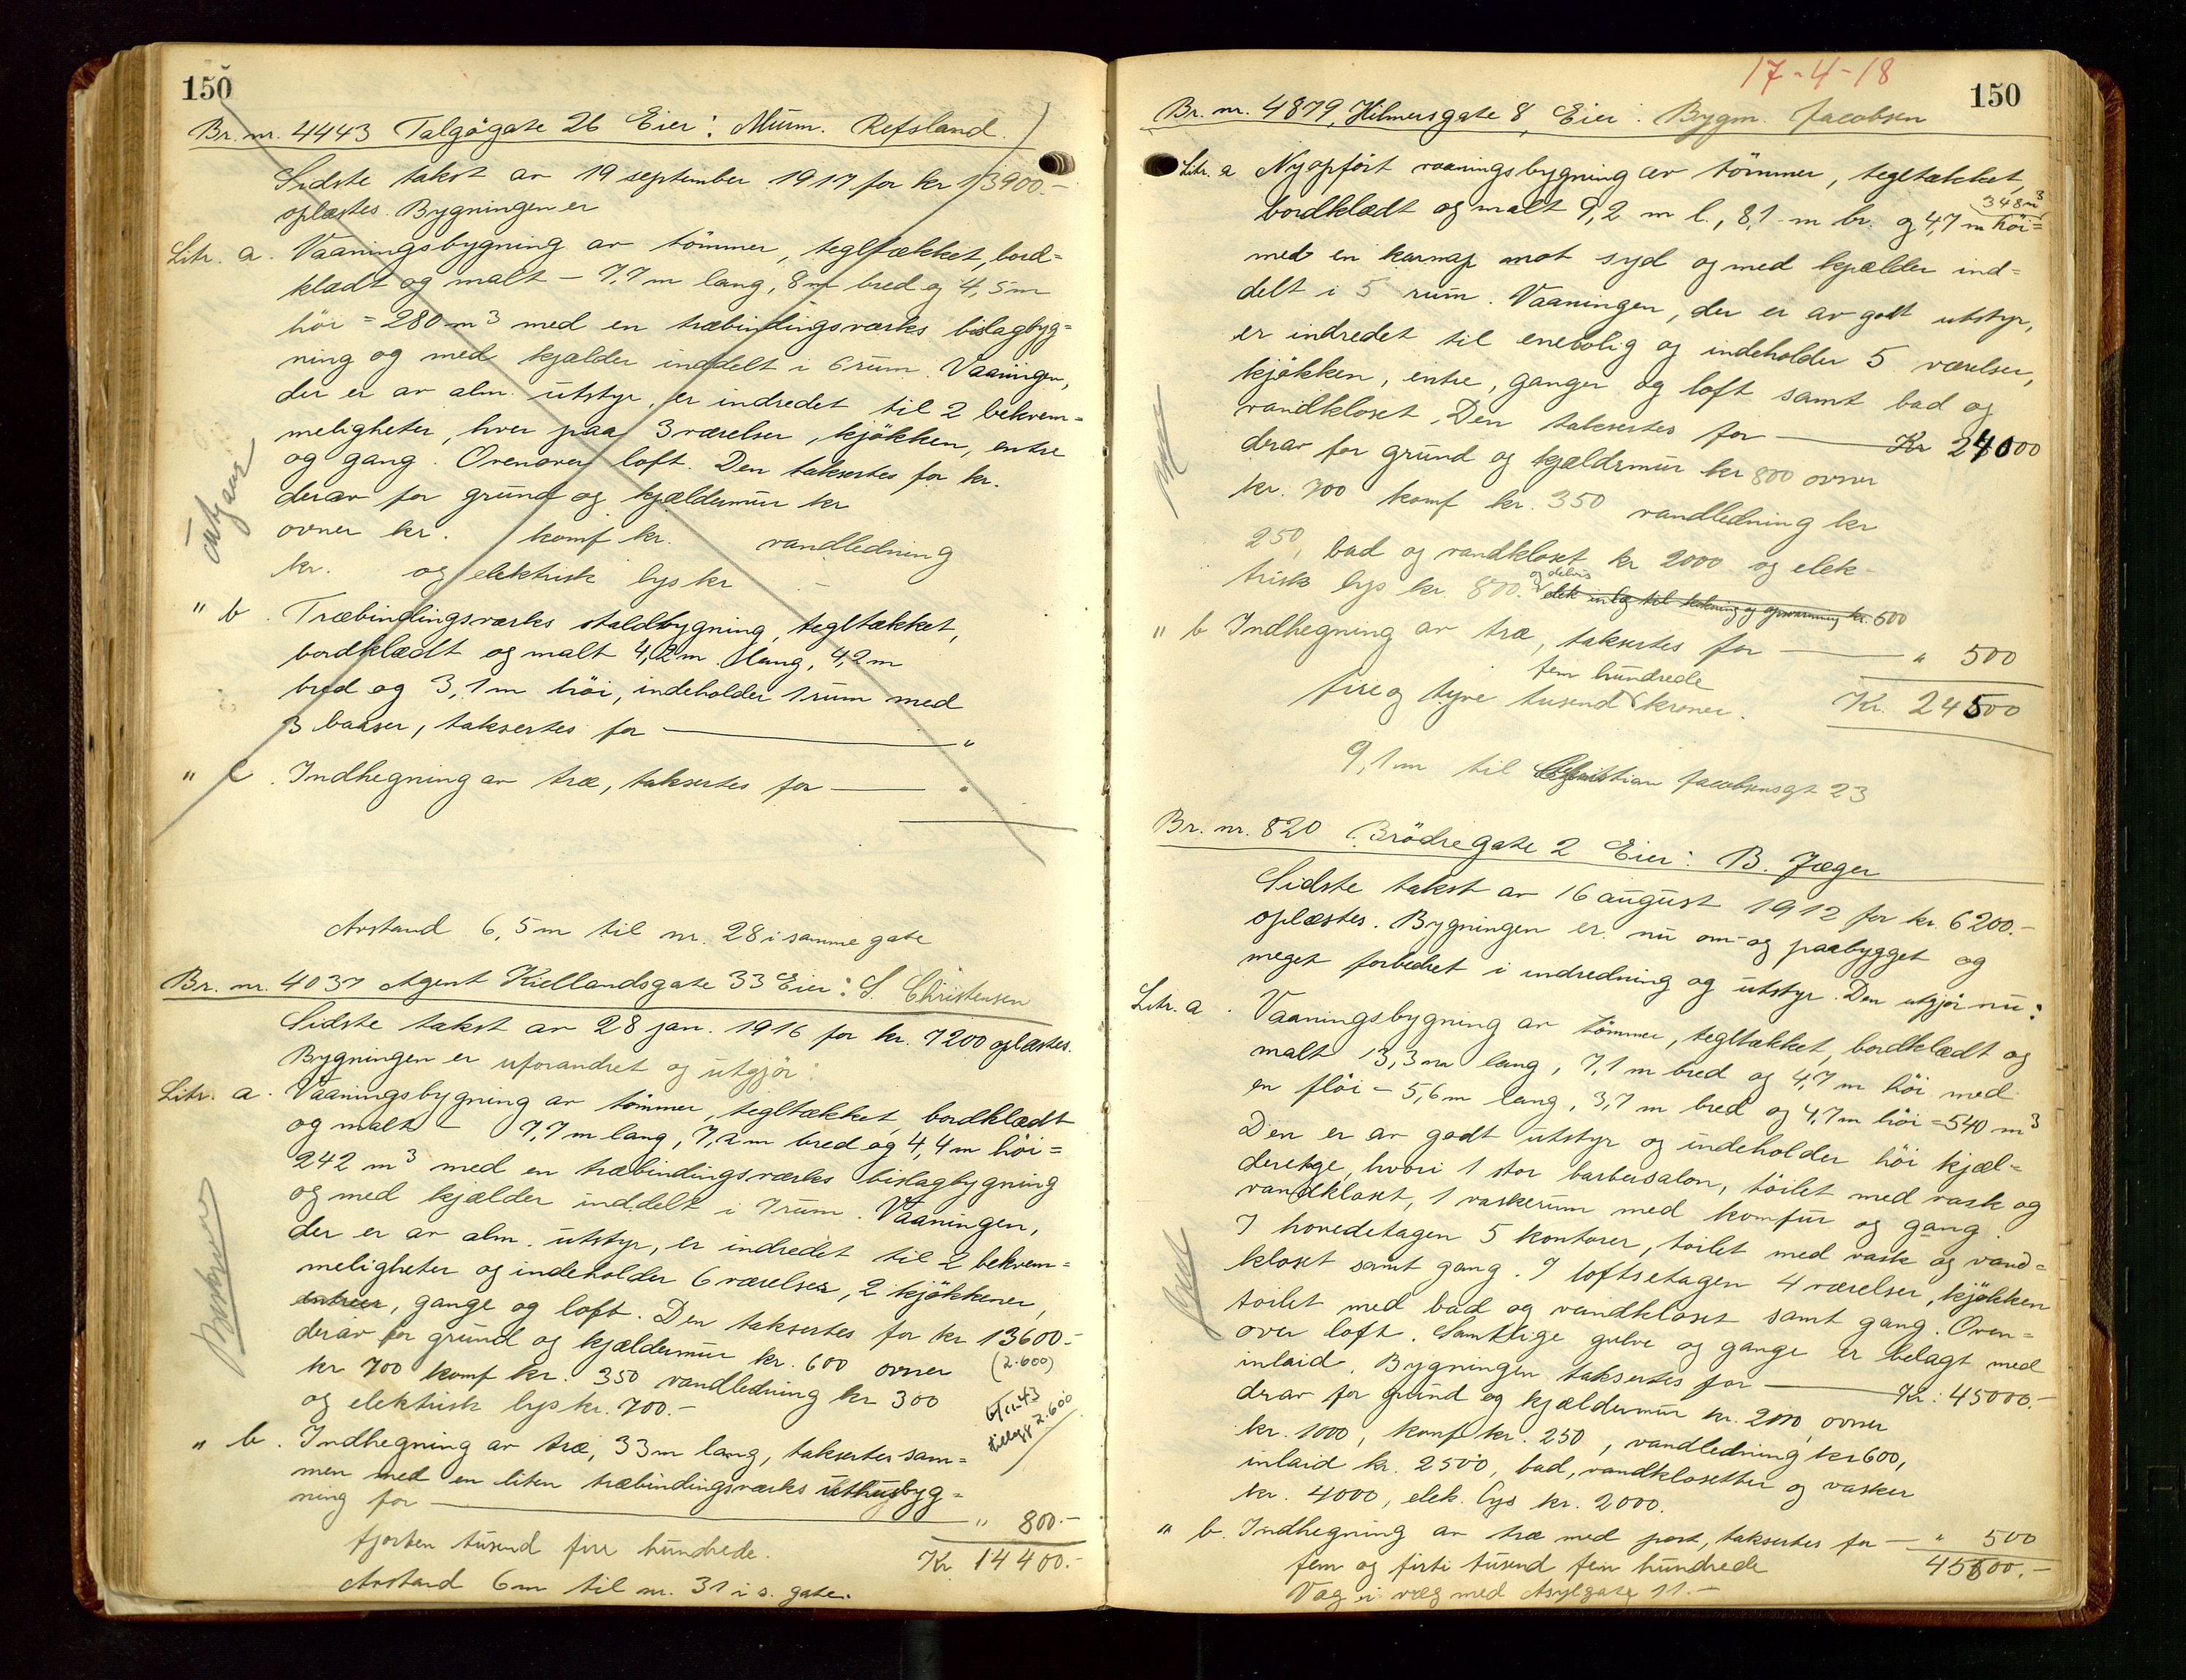 150
Br. nr. 4443 Talgögate 26 Eier: Mürm. Refsland.
Sidste takst av 19 september 1917 for kr 13900.-
oplæstes. Bygningen er
Litr. a. Vaaningsbygning av tömmer, tegltækket, bord=
klædt og malt - 7,7 m lang, 8 m bred og 4,5 m
höi = 280 m3 med en træbindingsværks bislagbyg=
ning og med kjælder inddelt i 6 rum. Vaaningen,
der er av alm. utstyr, er indredet til 2 bekvem=
meligheter, hver paa 3 værelser, kjökken, entre
og gang. Ovenover loft. Den taksertes for kr.
derav for grund og kjældermur kr
ovner kr. komf kr. vandledning
kr. og elektrisk lys kr -
utgaar
" b Træbindingsværks staldbygning, tegltækket,
bordklædt og malt 4,2 m. lang, 4,2 m
bred og 3,1 m höi, indeholder 1 rum med
3 baaser, taksertes for "
" c. Indhegning av træ, taksertes for "
Avstand 6,5 m til nr. 28 i samme gate
Br. nr. 4037 Agent Kiellandsgate 33 Eier: S. Christensen
Sidste takst av 28 jan. 1916 for kr. 7200 oplæstes.
Bygningen er uforandret og utgjör:
Litr. a. Vaaningsbygning av tömmer, tegltækket, bordklædt
og malt - 7,7 m lang, 7,2 m bred og 4,4 m höi =
242 m3 med en træbindingsværks bislagbygning
og med kjælder inddelt i 7 rum. Vaaningen,
der er av alm. utstyr, er indredet til 2 bekvem=
meligheter og indeholder 6 værelser, 2 kjökkener,
entreer, gange og loft. Den taksertes for kr 13600.-
derav for grund og kjældermur kr. 600 ovner (2.600)
kr 700 komf kr. 350 vandledning kr 300
og elektrisk lys kr. 700.-
tillegg 2.600
" b. Indhegning av træ, 33 m lang, taksertes sam=
men med en liten træbindingsværks uthusbyg=
ning for " 800.-
fjorten tusend fire hundrede. Kr 14400.-
Avstand 6 m til nr. 31 i s. gate.
17-4-18
150
Br. nr. 4879, Hilmersgate 8, Eier: Bygm. Jacobsen
Litr. a Nyopfört vaaningsbygning av tömmer, tegltækket,
bordklædt og malt 9,2 m l., 8,1 m br. og 4,7 m höi =
348 m3
med en karnap mot syd og med kjælder ind=
delt i 5 rum. Vaaningen, der er av godt utstyr,
er indredet til enebolig og indeholder 5 værelser,
kjökken, entre, ganger og loft samt bad og
vandkloset. Den taksertes for Kr 24000
derav for grund og kjældermur kr 800 ovner
kr. 700 komf kr. 350 vandledning kr
250, bad og vandkloset kr 2000 og elek-
trisk lys kr. 800. og delvis elek inlæg til kokning og opvarming kr. 600
" b Indhegning av træ, taksertes for " 500
fire og tyve tusend fem hundrede kroner. Kr. 24500
9,1 m til Christian Jacobsensgt 23
Br. nr. 820 Brödregate 2 Eier: B. Jæger
Sidste takst av 16 august 1912 for kr. 6200.-
oplæstes. Bygningen er nu om- og paabygget og
meget forbedret i indredning og utstyr. Den utgjör nu:
Litr. a. Vaaningsbygning av tömmer, tegltækket, bordklædt og
malt 13,3 m lang, 7,1 m bred og 4,7 m höi med
en flöi - 5,6 m lang, 3,7 m bred og 4,7 m höi = 540 m3
Den er av godt utstyr og indeholder höi kjæl=
deretage, hvori 1 stor barbersalon, toilet med vask og
vandkloset, 1 vaskerum med komfur og gang.
I hovedetagen 5 kontorer, toilet med vask og vand=
kloset samt gang. I loftsetagen 4 værelser, kjökken
toilet med bad og vandkloset samt gang. Oven=
over loft. Samtlige gulve og gange er belagt med
inlaid. Bygningen taksertes for Kr: 45000.-
derav for grund og kjældermur kr. 2000, ovner
kr. 1000, komf kr. 250, vandledning kr 600,
inlaid kr. 2500, bad, vandklosetter og vasker
kr. 4000, elek. lys kr. 2000.
" b. Indhegning av træ med port, taksertes for " 500
fem og firti tusend fem hundrede 45500.-
Væg i væg med Asylgate 11.-